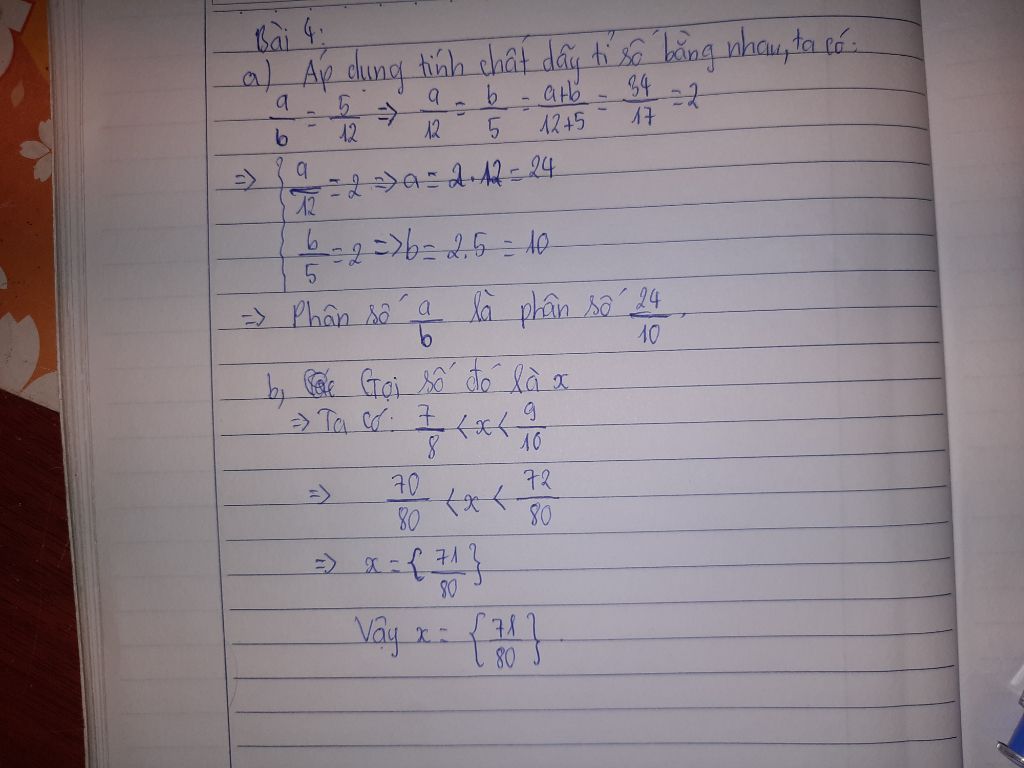 Bài 4:
a) Áp dụng tính chất dãy tỉ số bằng nhau, ta có:
a/b = 5/12 => a/12 = b/5 = a+b/12+5 = 34/17 = 2
=> { a/12 = 2 => a = 2.12 = 24
b/5 = 2 => b = 2.5 = 10
=> Phân số a/b là phân số 24/10.
b, Gọi số đó là x
=> Ta có: 7/8 < x < 9/10
=> 70/80 < x < 72/80
=> x = {71/80}
Vậy x = {71/80}.